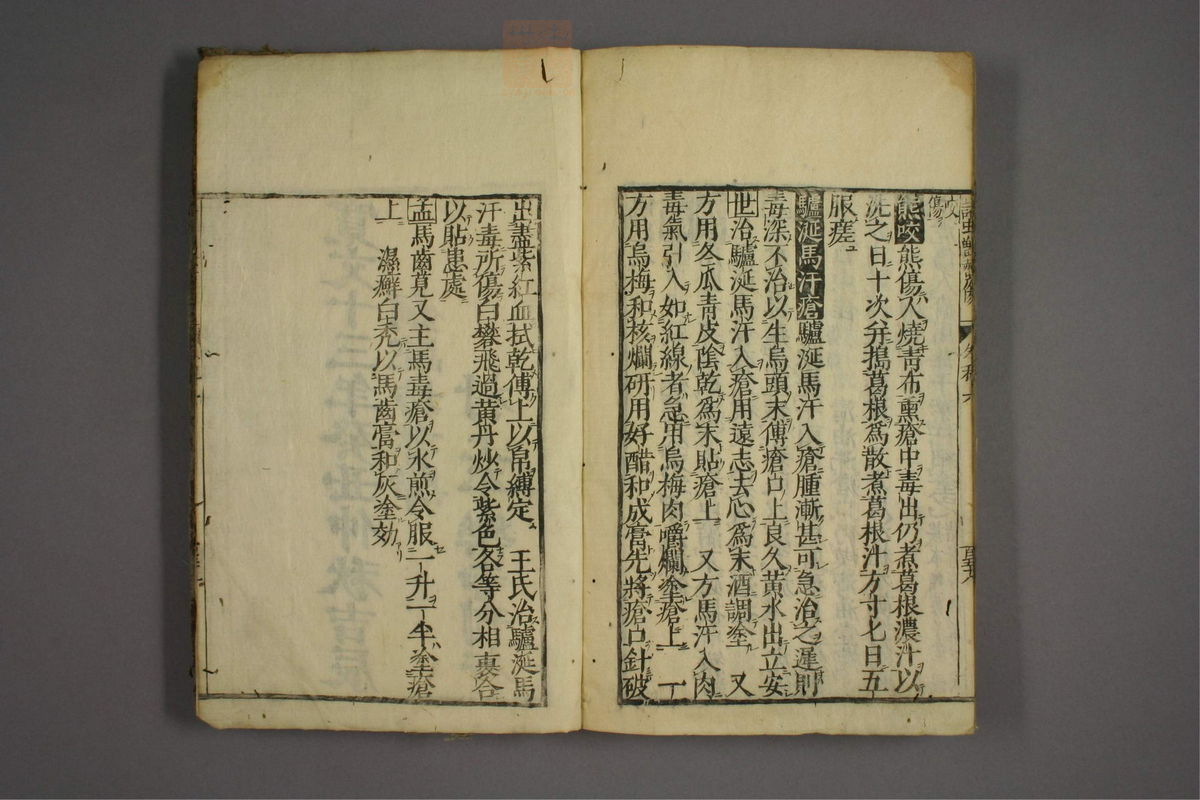 咬傷
熊咬熊傷人燒青布熏瘡中毒出仍煮葛根濃汁以
洗之日十次并搗葛根爲散煮葛根汁方寸匕日五
服瘥
驢涎馬汗瘡驢涎馬汗入瘡腫漸甚可急治之遲則
毒深不治以生烏頭末傅瘡口上良久黃水出立安
世治驢涎馬汗入瘡用遠志去心爲末酒調塗 又
方用冬瓜青皮陰乾爲末貼瘡上 又方馬汗入肉
毒氣引入如紅線者急用烏梅肉嚼爛塗瘡上 一
方用烏梅和核爛研用好醋和成膏先將瘡口針破
出盡紫紅血拭乾傅上以帛縛定 王氏治驢涎馬
汗毒所傷白礬飛過黃丹炒令紫色各等分相合
以貼患處
孟馬齒莧又主馬毒瘡以水煎令服一升一半塗瘡
上 濕癬白禿以馬齒膏和灰塗効